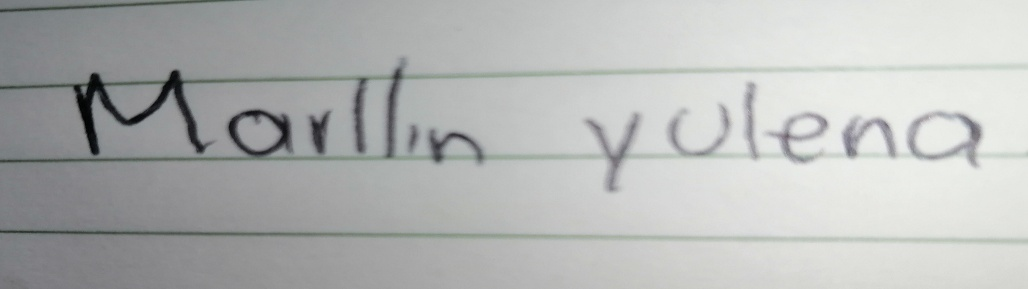 Marllin yulena